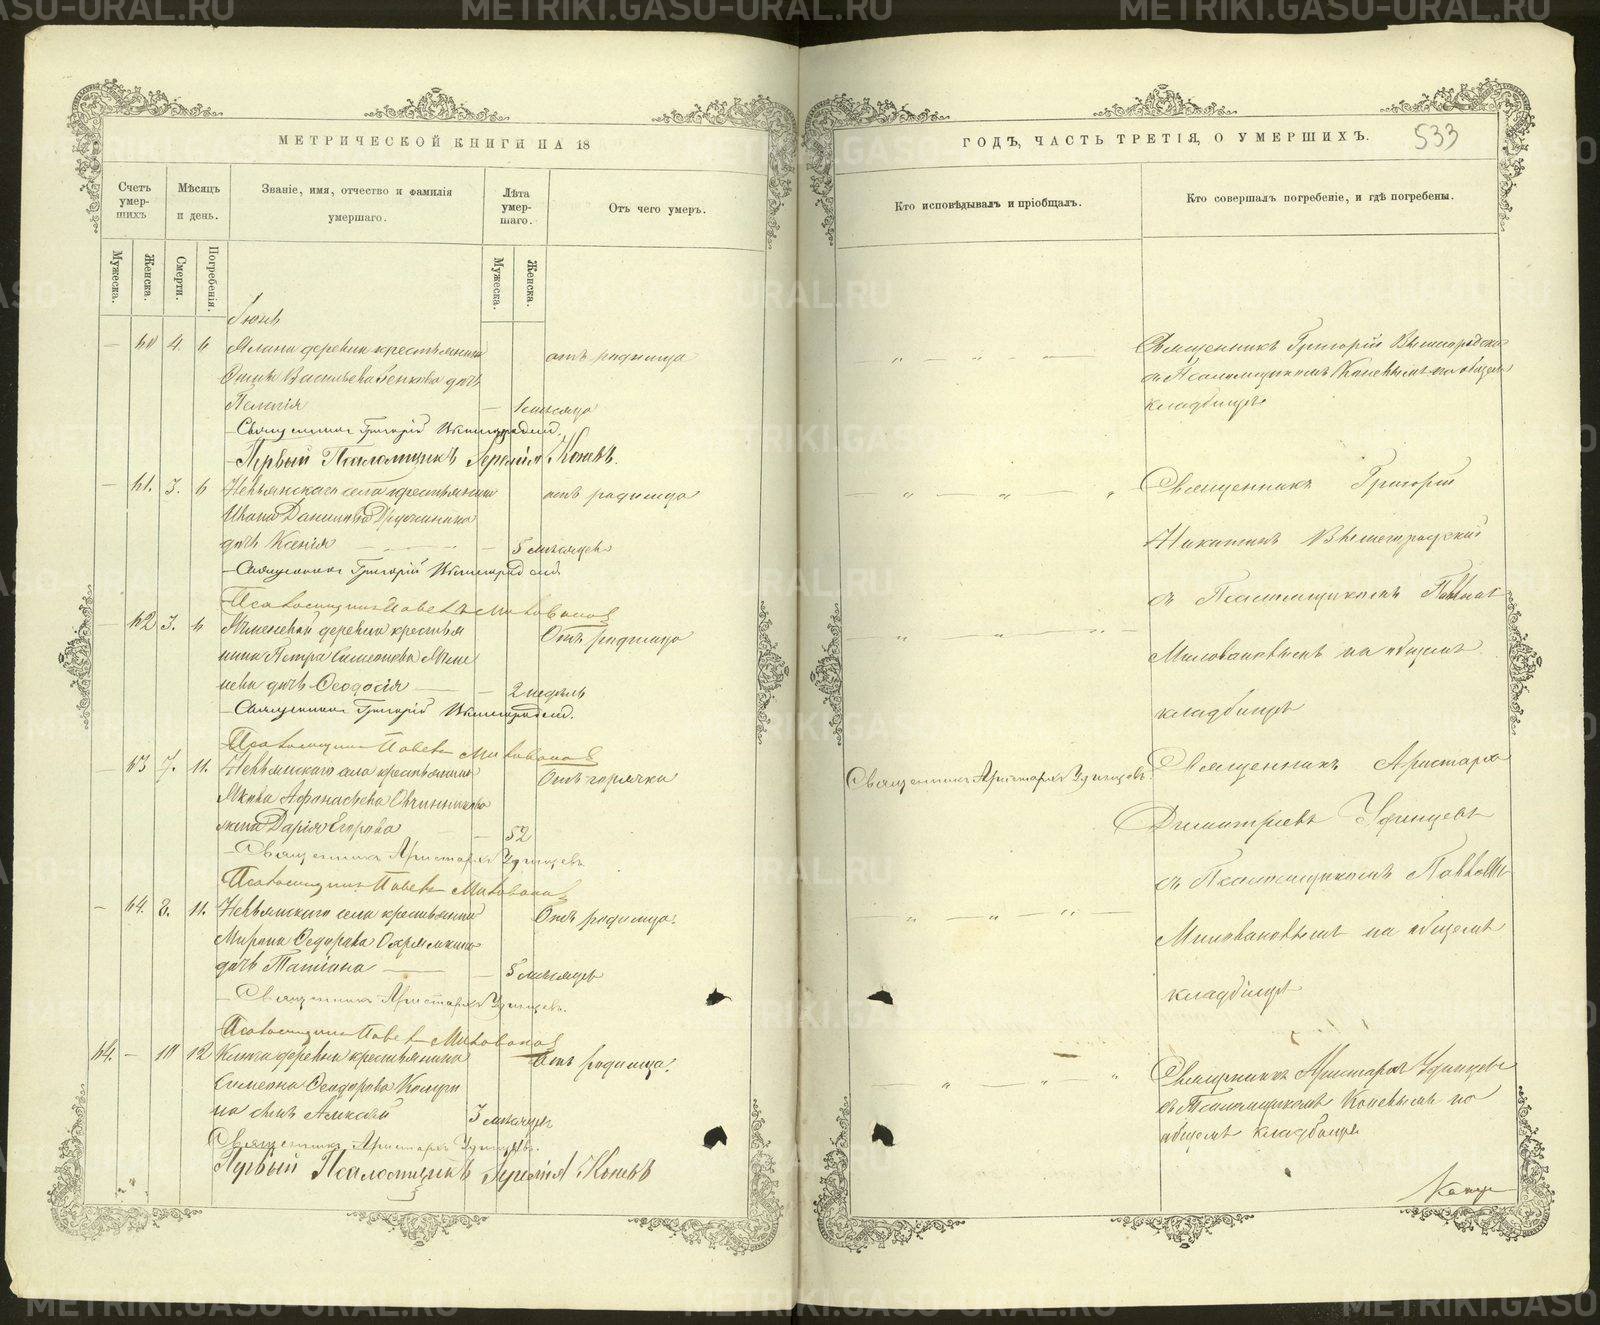 МЕТРИЧЕСКОЙ КНИГИ НА 18
Счетъ умер-шихъ
Мѣсяцъ и день.
Званіе, имя, отчество и фамилія умершаго.
Лѣта умер-шаго.
Отъ чего умеръ.
Мужеска.
Женска.
Смерти.
Погребенія.
Мужеска.
Женска.
Іюнь
— 60 4. 6 деревни крестьянина отъ родимца
Васильева дочь
Пелагія —
Священникъ Григорій
Первый Псаломщикъ Іеремія Коневъ.
— 61. 3. 6 Невьянскаго села крестьянина отъ родимца
Ивана
дочь Ксенія — 5 мѣсяцевъ
Священникъ Григорій
Псаломщикъ Павелъ Миловановъ
— 62 3. 6 деревни крестья Отъ родимца
нина Петра Симеонова
дочь Ѳеодосія — 2 недѣль
Священникъ Григорій
Псаломщикъ Павелъ Миловановъ
— 63 7. 11. Невьянскаго села крестьянина Отъ горячки
Якова Аѳанасьева Овчинникова
жена Дарія Егорова — 52
Священникъ Аристархъ Удинцевъ
Псаломщикъ Павелъ Миловановъ
— 64. 8. 11. Невьянскаго села крестьянина Отъ родимца.
Мирона Ѳедорова
дочь Татіана — 5 мѣсяцевъ
Священникъ Аристархъ Удинцевъ.
Псаломщикъ Павелъ Миловановъ
64. — 10 12 деревни крестьянина Отъ родимца.
Симеона Ѳеодорова
на сынъ Алексѣй 3 мѣсяцевъ
Священникъ Аристархъ Удинцевъ.
Первый Псаломщикъ Іеремія Коневъ
ГОДЪ, ЧАСТЬ ТРЕТІЯ, О УМЕРШИХЪ.
533
Кто исповѣдывалъ и пріобщалъ.
Кто совершалъ погребеніе, и гдѣ погребены.
Священникъ Григорій
съ Псаломщикомъ Коневымъ на общемъ
кладбищѣ
Священникъ Григорій
Никитинъ
съ Псаломщикомъ Павломъ
Миловановымъ на общемъ
кладбищѣ
Священникъ Аристархъ Удинцевъ.
Священникъ Аристархъ
Димитріевъ Удинцевъ
съ Псаломщикомъ Павломъ
Миловановымъ на общемъ
кладбищѣ
Священникъ Аристархъ Удинцевъ
съ Псаломщикомъ Коневымъ на
общемъ кладбищѣ
METRIKI.GASU-URAL.RU